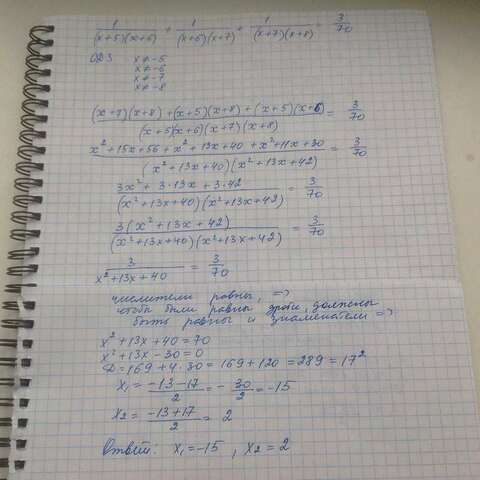 1/((x+5)(x+6)) + 1/((x+6)(x+7)) + 1/((x+7)(x+8)) = 3/70
ОДЗ x≠-5
x≠-6
x≠-7
x≠-8
((x+7)(x+8)+(x+5)(x+8)+(x+5)(x+6))/((x+5)(x+6)(x+7)(x+8)) = 3/70
(x²+15x+56+x²+13x+40+x²+11x+30)/((x²+13x+40)(x²+13x+42)) = 3/70
(3x²+3·13x+3·42)/((x²+13x+40)(x²+13x+42)) = 3/70
3(x²+13x+42)/((x²+13x+40)(x²+13x+42)) = 3/70
3/(x²+13x+40) = 3/70
числители равны, =>
чтобы были равны дроби, должны
быть равны и знаменатели =>
x²+13x+40=70
x²+13x-30=0
D=169+4·30=169+120=289=17²
x₁=(-13-17)/2=-30/2=-15
x₂=(-13+17)/2=2
Ответ: x₁=-15, x₂=2